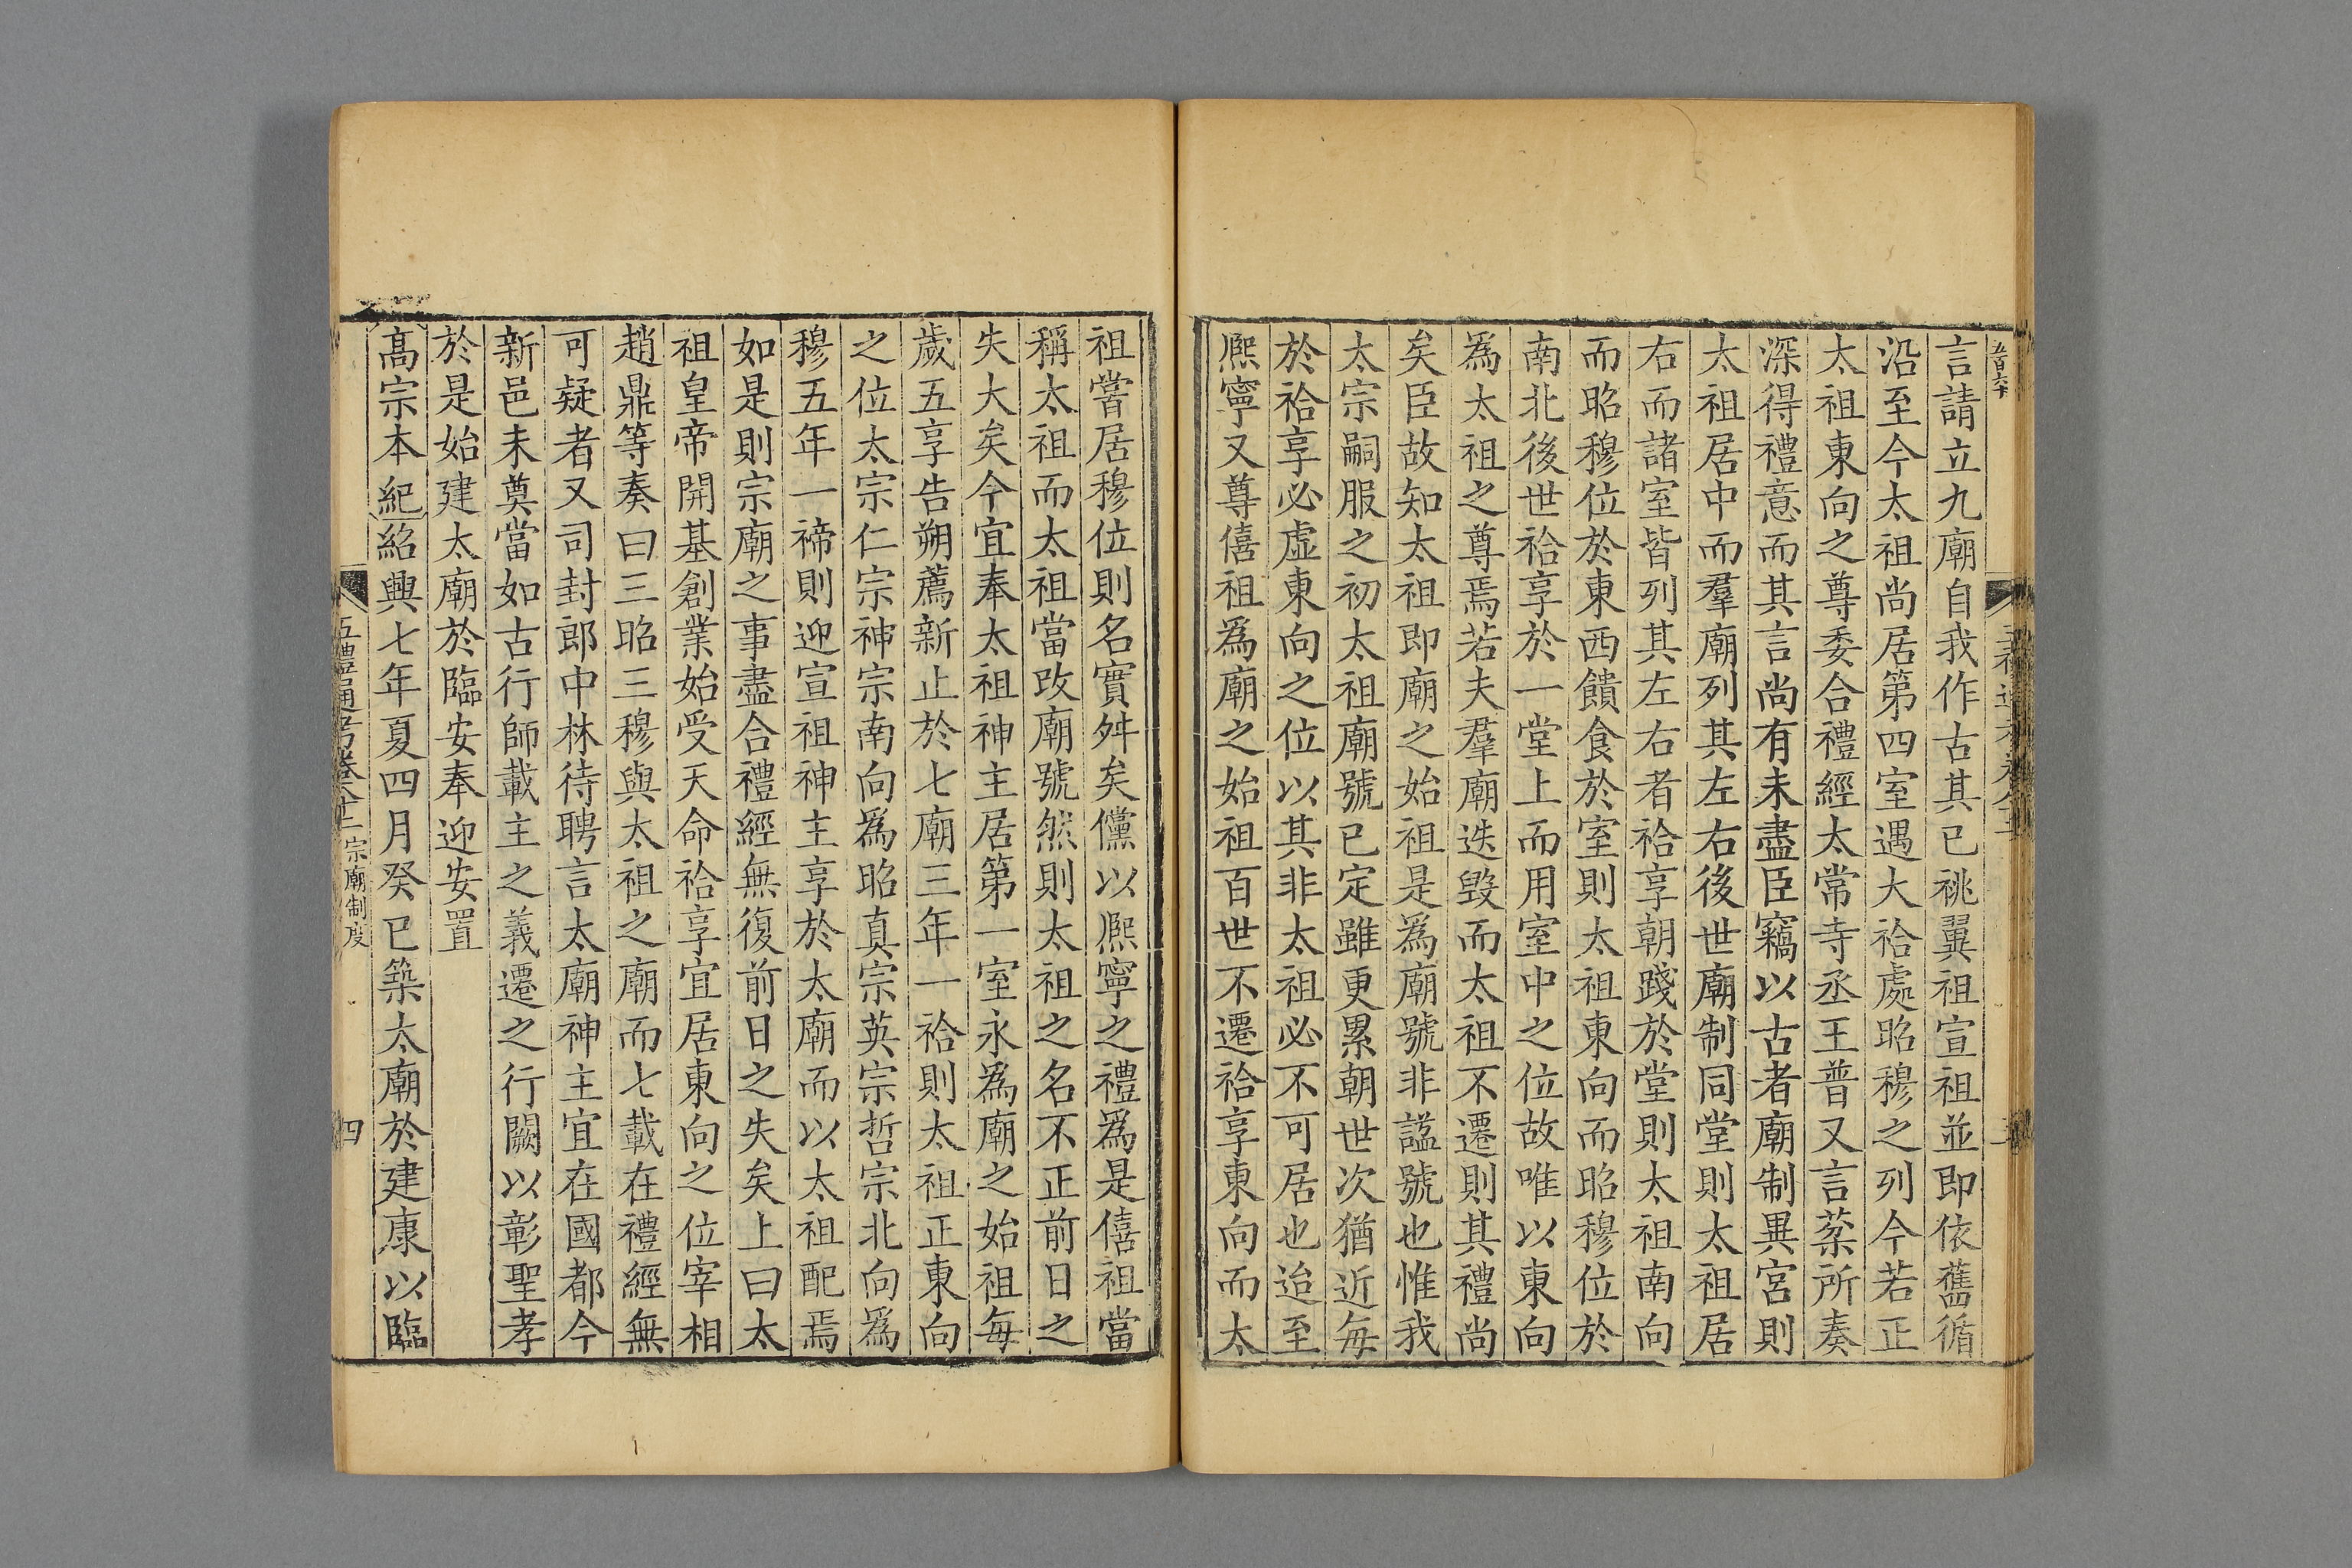 五百六十
言請立九廟自我作古其已祧翼祖宣祖並即依舊循
沿至今太祖尚居第四室遇大祫處昭穆之列今若正
太祖東向之尊委合禮經太常寺丞王普又言棻所奏
深得禮意而其言尚有未盡臣竊以古者廟制異宮則
太祖居中而羣廟列其左右後世廟制同堂則太祖居
右而諸室皆列其左右者祫享朝踐於堂則太祖南向
而昭穆位於東西饋食於室則太祖東向而昭穆位於
南北後世祫享於一堂上而用室中之位故唯以東向
為太祖之尊焉若夫羣廟迭毀而太祖不遷則其禮尚
矣臣故知太祖即廟之始祖是為廟號非諡號也惟我
太宗嗣服之初太祖廟號已定雖更累朝世次猶近每
於祫享必虛東向之位以其非太祖必不可居也迨至
熈寧又尊僖祖為廟之始祖百世不遷祫享東向而太
祖嘗居穆位則名實舛矣儻以熈寧之禮為是僖祖當
稱太祖而太祖當改廟號然則太祖之名不正前日之
失大矣今宜奉太祖神主居第一室永為廟之始祖每
歲五享告朔薦新止於七廟三年一祫則太祖正東向
之位太宗仁宗神宗南向為昭真宗英宗哲宗北向為
穆五年一禘則迎宣祖神主享於太廟而以太祖配焉
如是則宗廟之事盡合禮經無復前日之失矣上曰太
祖皇帝開基創業始受天命祫享宜居東向之位宰相
趙鼎等奏曰三昭三穆與太祖之廟而七載在禮經無
可疑者又司封郎中林待聘言太廟神主宜在國都今
新邑未奠當如古行師載主之義遷之行闕以彰聖孝
於是始建太廟於臨安奉迎安置
高宗本紀紹興七年夏四月癸巳築太廟於建康以臨
五禮通考卷八十一 宗廟制度 四